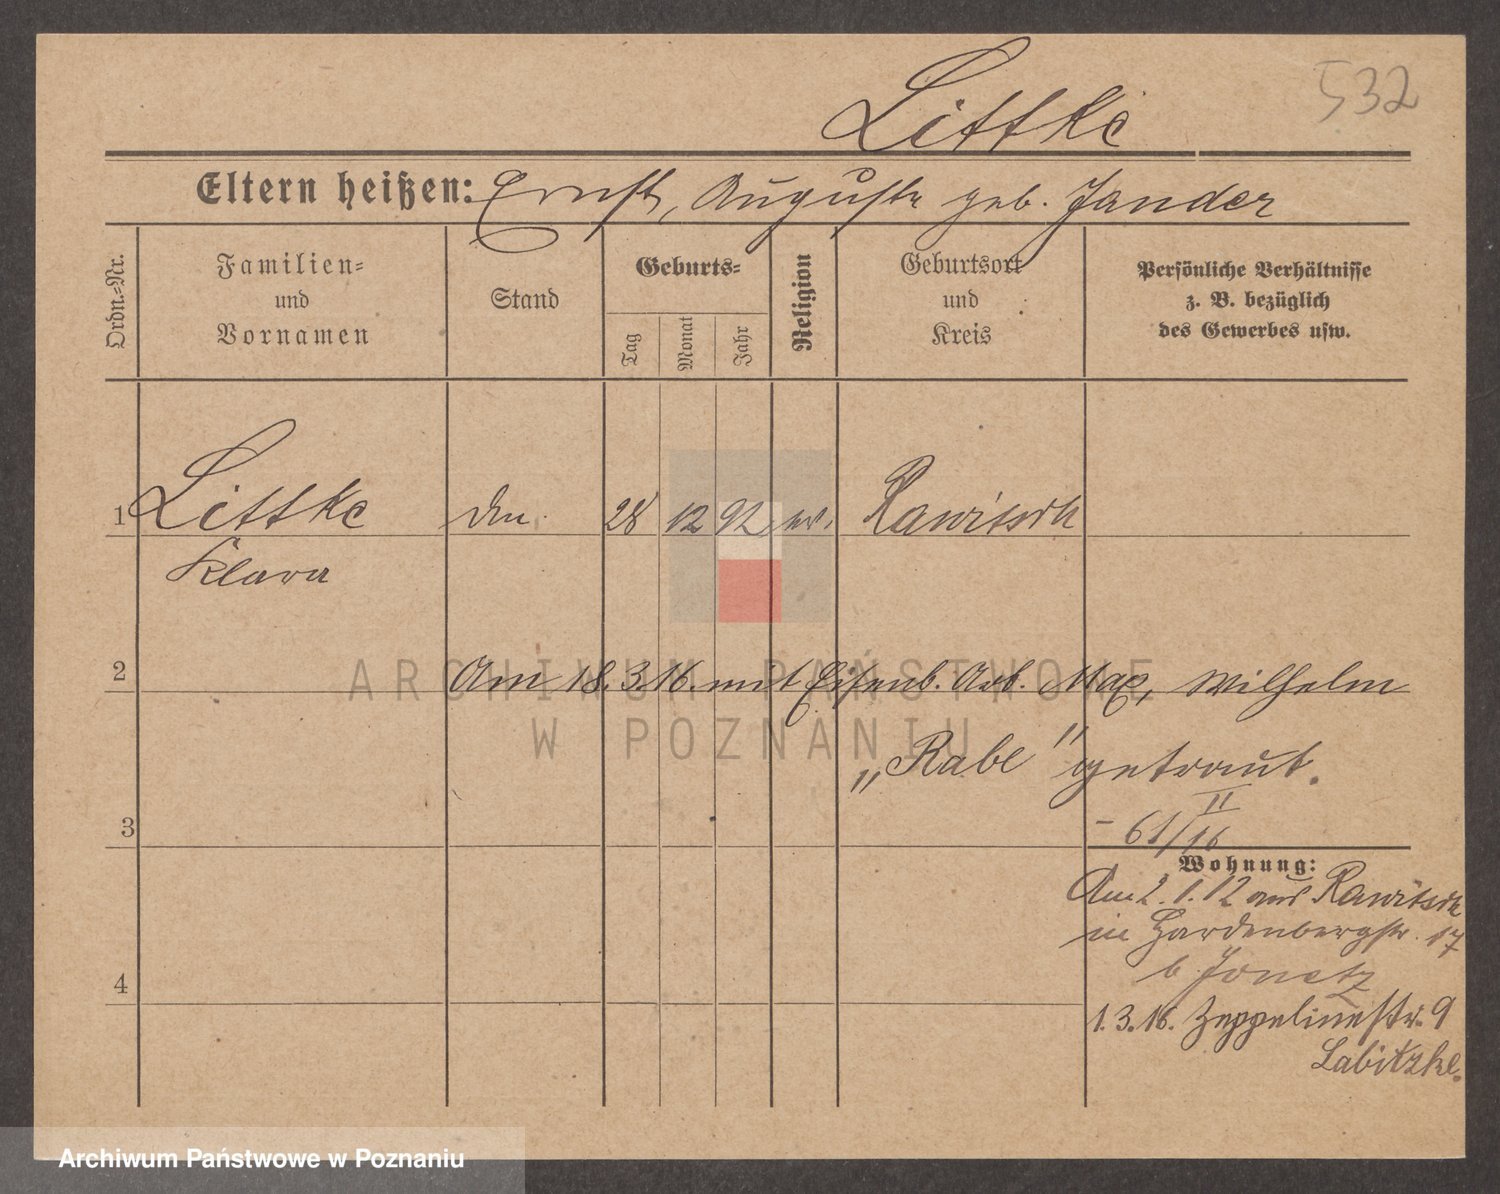 532
Littke
Eltern heißen: Ernst, Auguste geb. Jander
Ordn.=Nr.
Familien=
und
Vornamen
Stand
Geburts=
Tag
Monat
Jahr
Religion
Geburtsort
und
Kreis
Persönliche Verhältnisse
z. B. bezüglich
des Gewerbes usw.
1 Littke 28 12 92 ev. Rawitsch
Klara
2 Am 18.3.16. mit Eisenb. Arb. Max, Wilhelm
„Rabe" getraut.
II
3 - 61/16
Wohnung:
Am 2.1.12 aus Rawitsch
in Hardenbergstr. 17
b. Jonetz
4
1.3.16. Zeppelinestr. 9
Labitzke.
ARCHIWUM PAŃSTWOWE
W POZNANIU
Archiwum Państwowe w Poznaniu